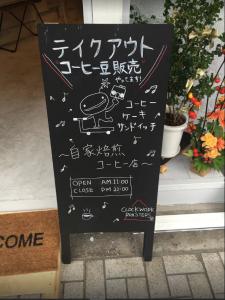 テイクアウト
コーヒー豆販売
やってます!
コーヒー
ケーキ
サンドイッチ
〜自家焙煎
コーヒー店〜
OPEN AM 11:00
CLOSE PM 22:00
CLOCKWORK
ROASTERS
COME